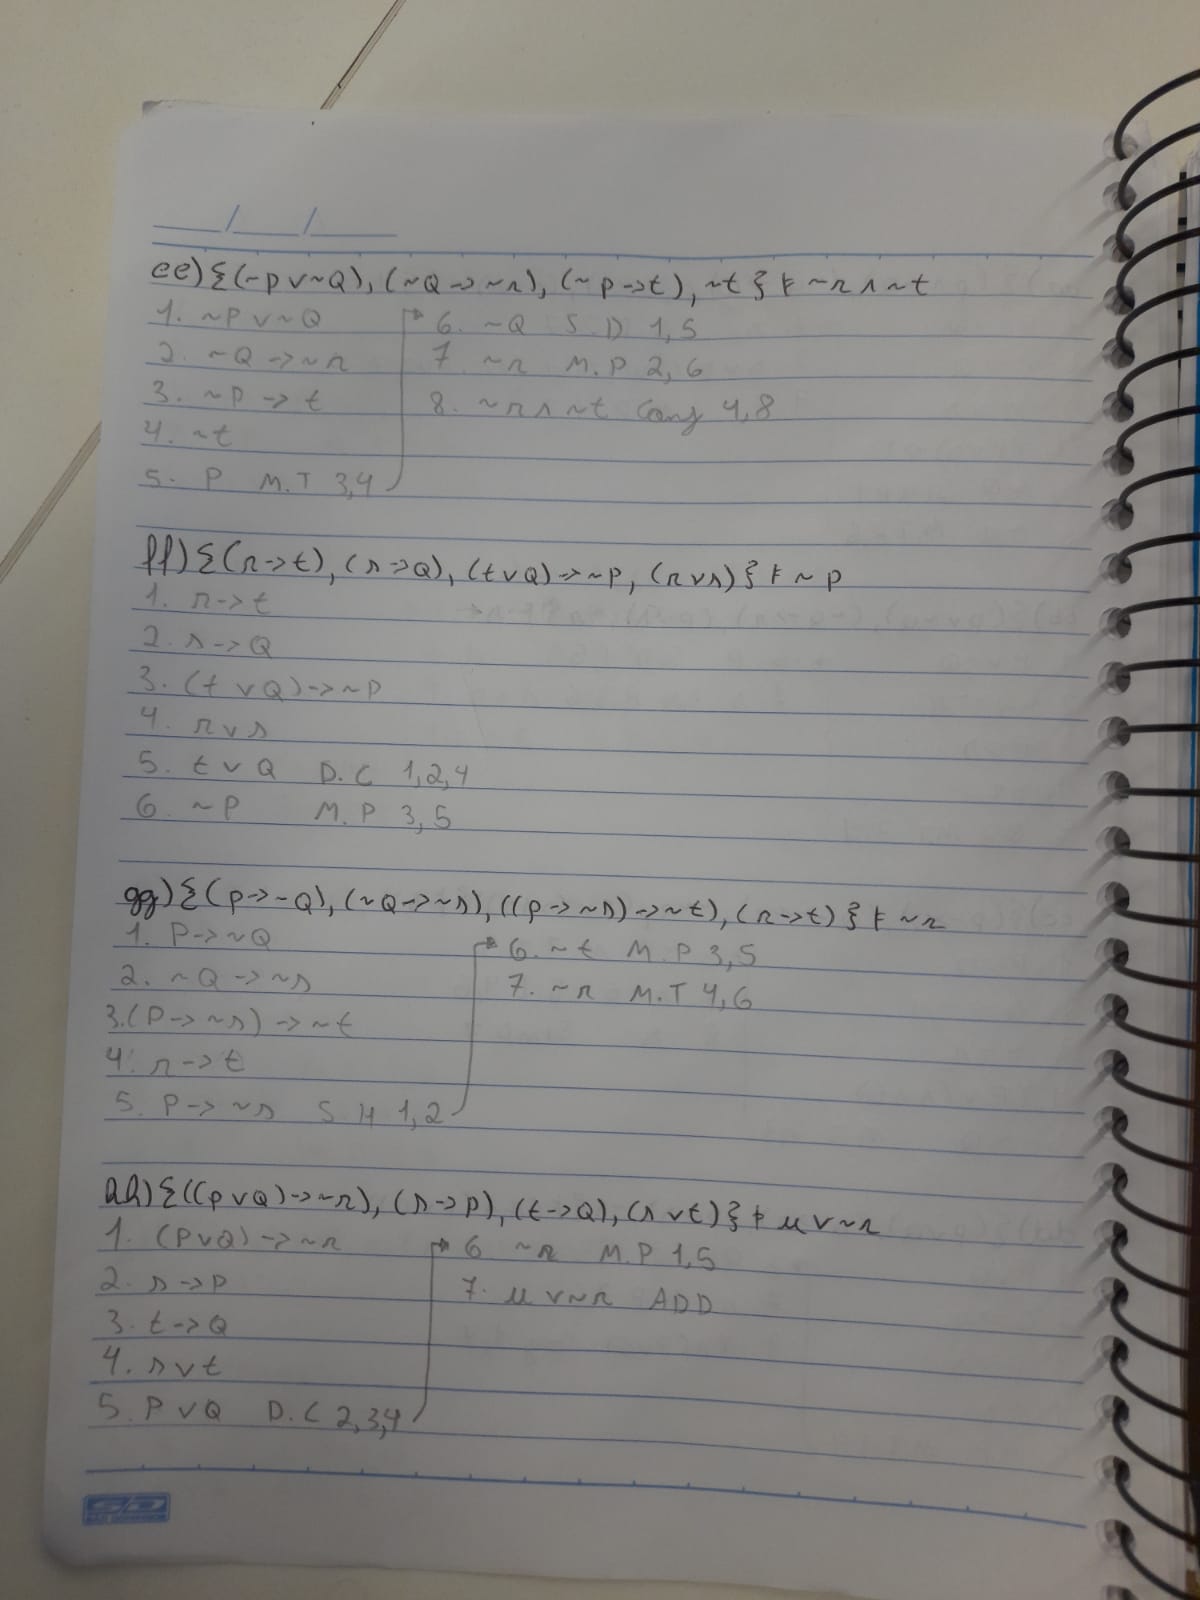 ee) {(~p v ~Q), (~Q -> ~r), (~p -> t), ~t} ⊧ ~r ∧ ~t
1. ~P v ~Q
2. ~Q -> ~r
3. ~P -> t
4. ~t
5. P M.T 3,4
6. ~Q S.D 1,5
7 ~r M.P 2,6
8. ~r ∧ ~t Conj 4,8
ff) {(r -> t), (s -> Q), (t v Q) -> ~p, (r v s)} ⊧ ~p
1. r -> t
2. s -> Q
3. (t v Q) -> ~P
4. r v s
5. t v Q D.C 1,2,4
6. ~P M.P 3,5
gg) {(p -> ~Q), (~Q -> ~s), ((p -> ~s) -> ~t), (r -> t)} ⊧ ~r
1. P -> ~Q
2. ~Q -> ~s
3. (P -> ~s) -> ~t
4. r -> t
5. P -> ~s S H 1,2
6. ~t M.P 3,5
7. ~r M.T 4,6
hh) {((p v Q) -> ~r), (s -> p), (t -> Q), (s v t)} ⊧ u v ~r
1. (P v Q) -> ~r
2. s -> P
3. t -> Q
4. s v t
5. P v Q D.C 2,3,4
6 ~r M.P 1,5
7. u v ~r ADD
SD